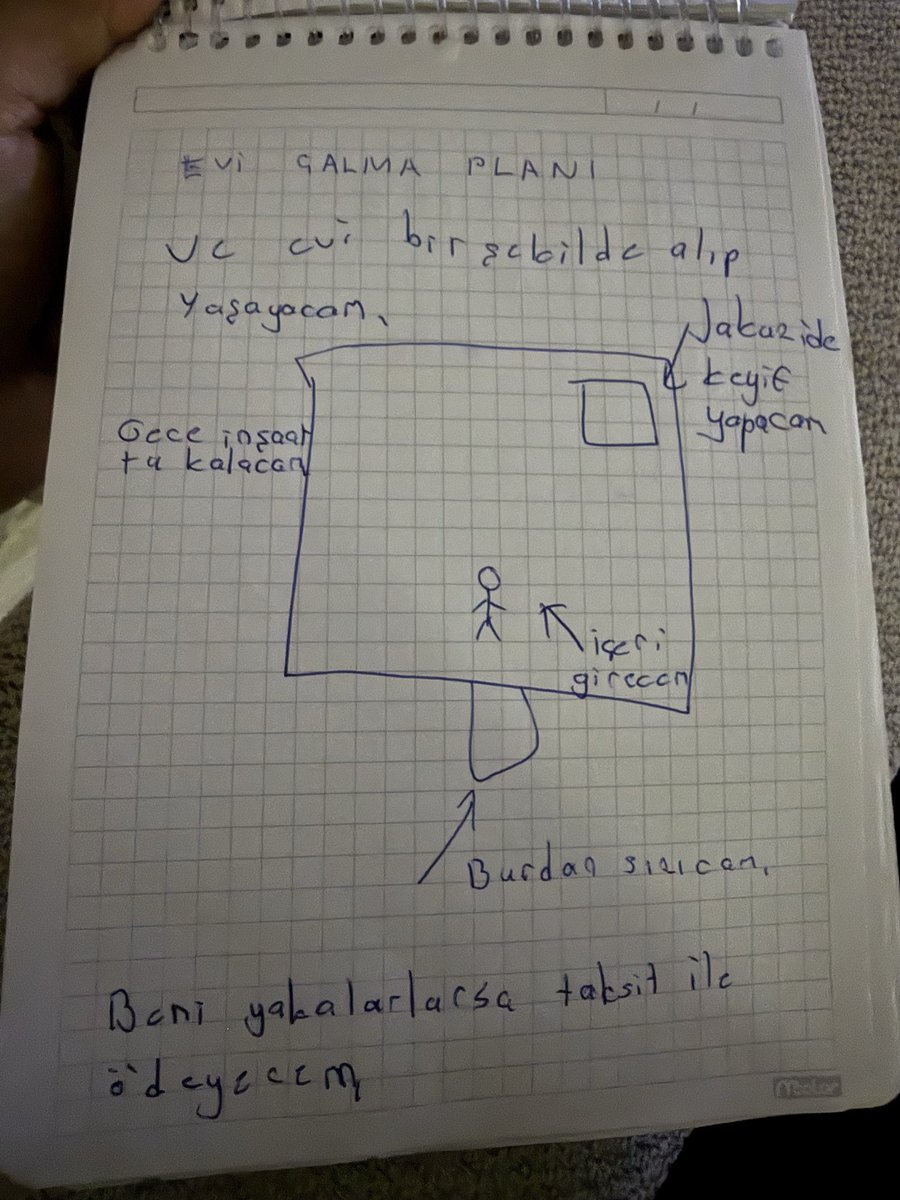 EVi ÇALMA PLANI
Ve evi bir şebilde alıp
Yaşayacam,
Jakuzide
keyif
yapacam
Gece inşaat
ta kalacam
içeri
girecem
Burdan sızıcam,
Beni yakalarlarsa taksit ile
ödeyecem